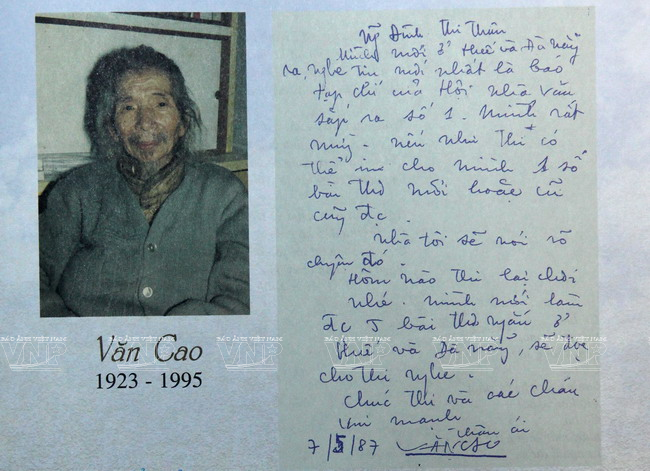 Ng Đình Thi Thân
Mình mới ở Huế và Đà nẵng
ra, nghe tin mới nhất là báo
tạp chí của Hội nhà văn
sắp ra số 1. Mình rất
mừng. nếu như Thi có
thể in cho mình 1 số
bài thơ mới hoặc cũ
cũng đc.
nhà tôi sẽ nói rõ
chuyện đó.
Hôm nào thi lại chơi
nhé. mình mới làm
đc 5 bài thơ ngắn ở
Huế và Đà nẵng, sẽ đọc
cho thi nghe.
Chúc Thi và các cháu
khỏi mạnh
thân ái
7/5/87 VĂN CAO
Văn Cao
1923 - 1995
BÁO ẢNH VIỆT NAM
VNP